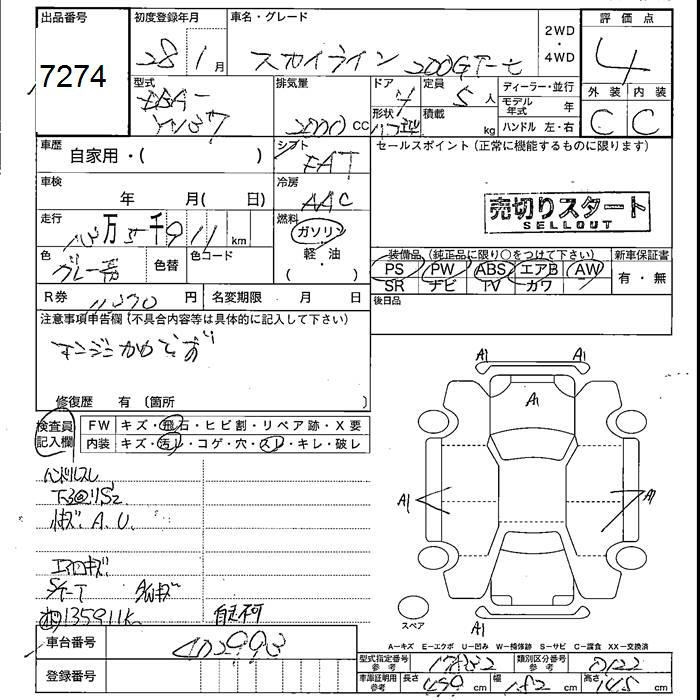 出品番号
7274
初度登録年月
28 1 月
車名・グレード
スカイライン 200GT-t
2WD
・
4WD
評価点
4
外装 内装
C C
型式
DBA-
YV37
排気量
2000 CC
ドア 4
形状
定員
5 人
積載
kg
ディーラー・並行
モデル年式 年
ハンドル 左・右
車歴
自家用・( )
シフト
FAT
セールスポイント (正常に機能するものに限ります)
売切りスタート
SELLOUT
車検
年 月( 日)
冷房
AAC
走行
万 5千911 km
燃料
ガソリン
軽・油
( )
色
グレー
色替
色コード
装備品 (純正品に限り○をつけて下さい)
PS PW ABS エアB AW
SR ナビ TV カワ
新車保証書
有・無
R券 円
名変期限 月 日
後日品
注意事項申告欄 (不具合内容等は具体的に記入して下さい)
修復歴 有 (箇所 )
検査員記入欄
FW キズ・飛石・ヒビ割・リペア跡・X要
内装 キズ・汚レ・コゲ・穴・スレ・キレ・破レ
ハンドルスレ
A.U.
エアロキズ
135911K
自走不可
A1 A1
A1
A1 A1
A1
スペア
A-キズ E-エクボ U-凹み W-補修跡 S-サビ C-腐食 XX-交換済
車台番号
登録番号
型式指定番号 参考
類別区分番号 参考
0122
車庫証明用 参考
長さ 479 cm 幅 182 cm 高さ 145 cm